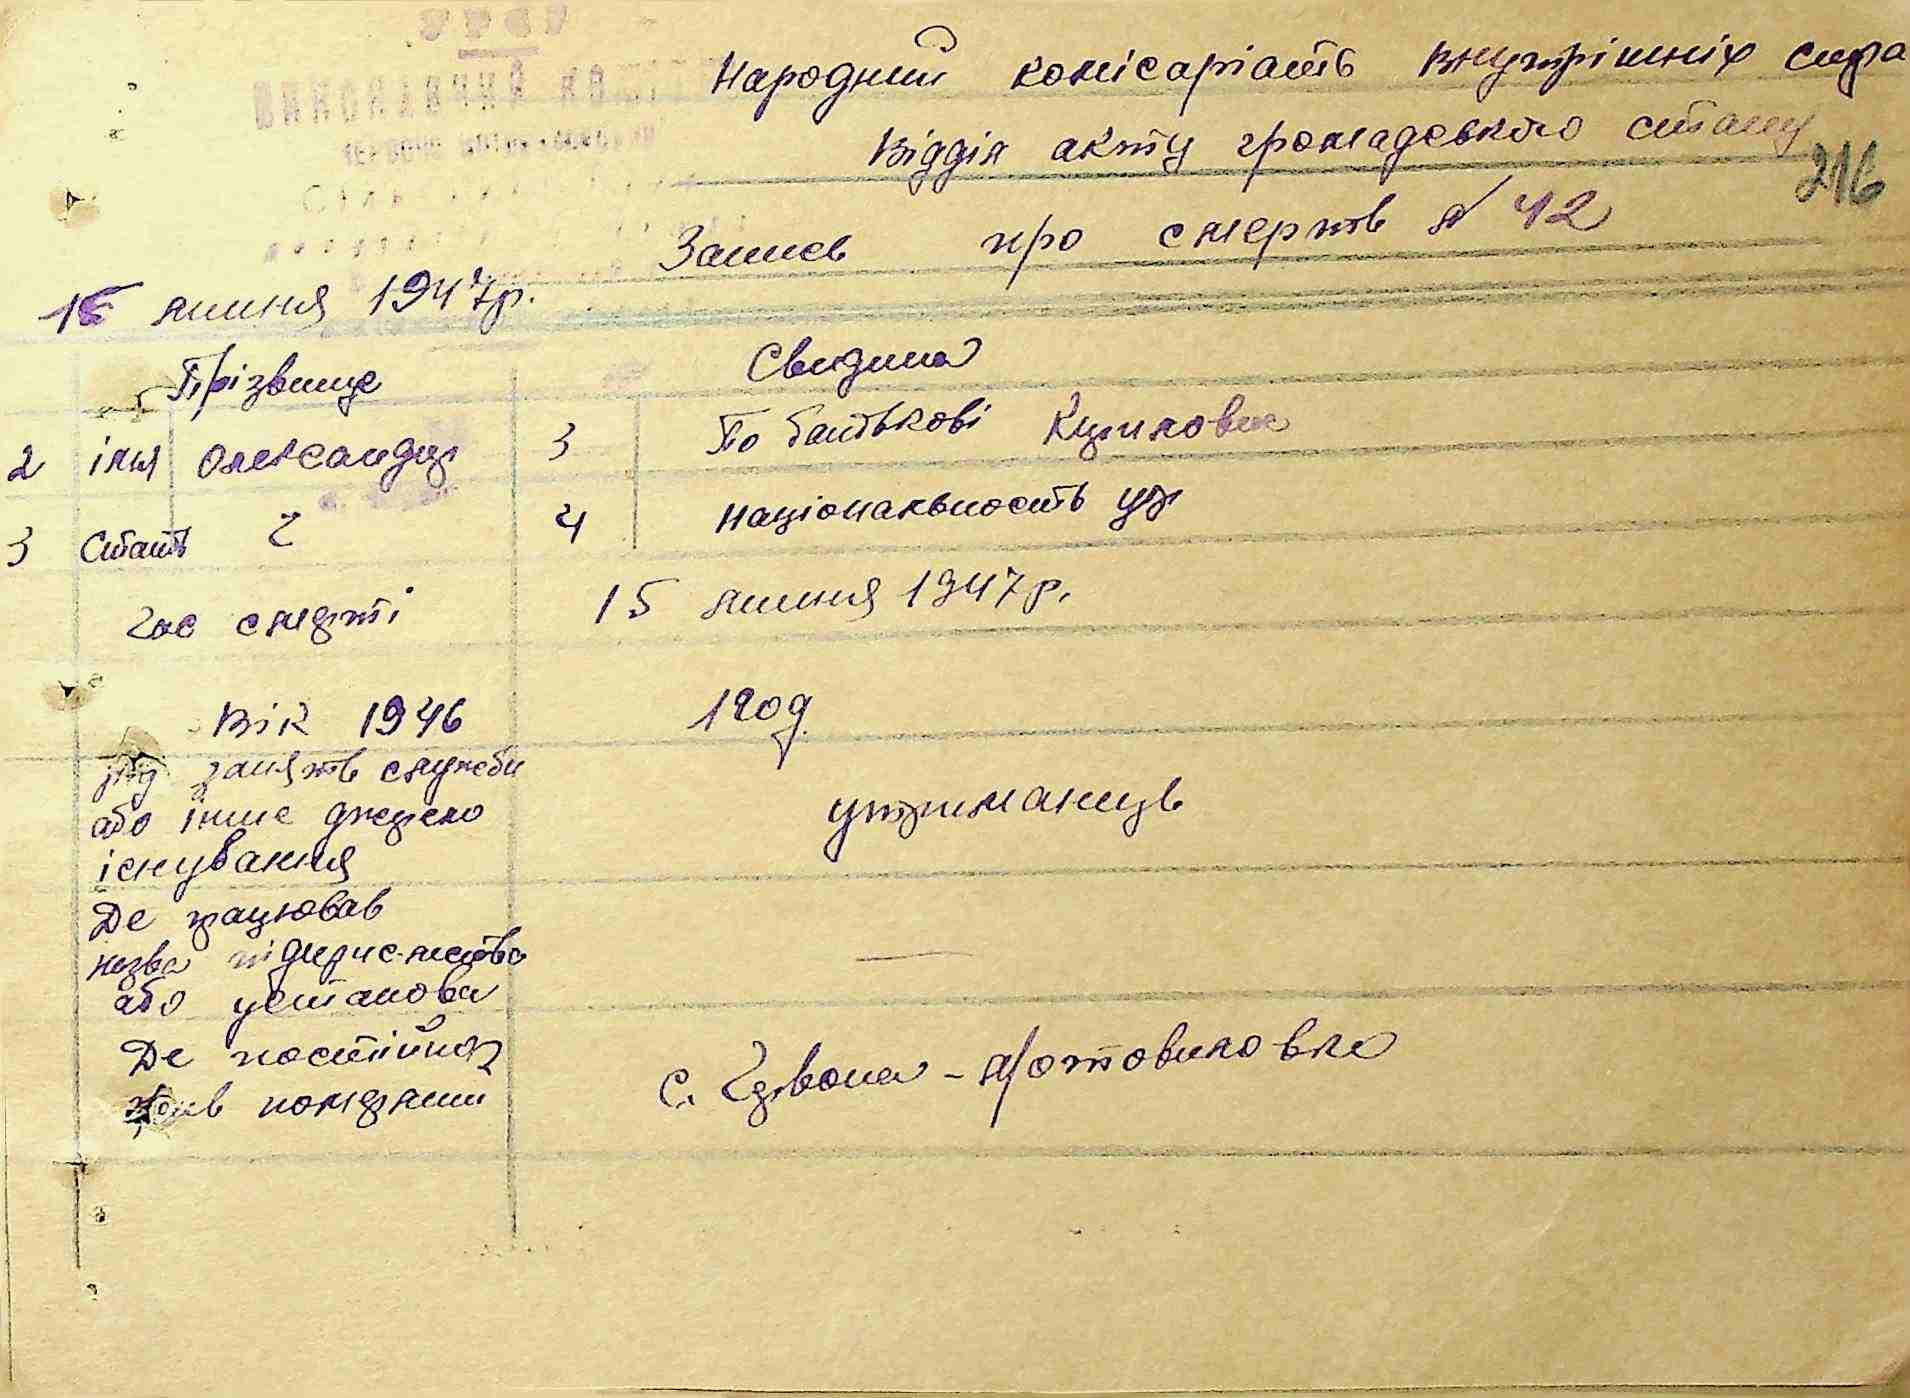 Народний комісаріать внутрішніх спра
Відділ акту громадського стану
216
Запись про смерть № 42
16 липня 1947р.
Прізвище Свидина
2 імя Олександр 3 По батькові Кирилович
3 Стать ч 4 національность укр
Час смерті 15 липня 1947р.
Вік 1946 1 год
рід занять служби
або інше джерело утриманець
існування
Де працював
назва підприємства
або установа
Де постійно
жив померший с. Червона-Мотовиловка